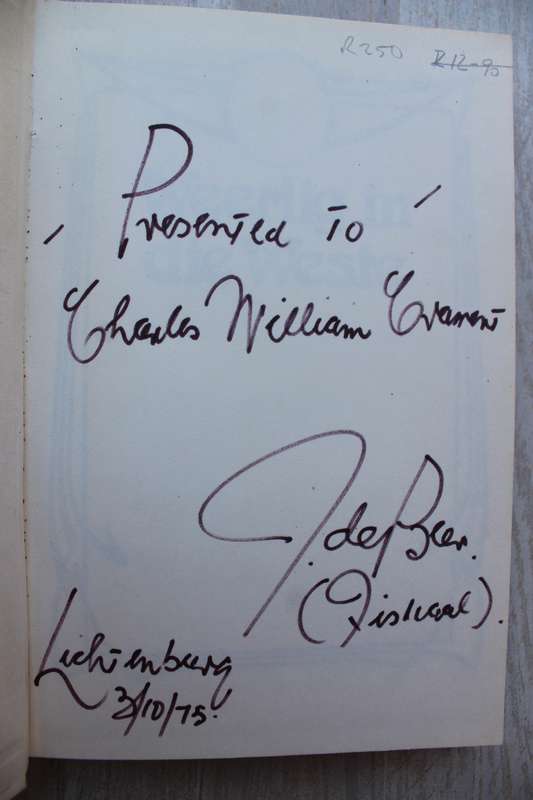 R250 R12-95
Presented to
Charles William
J. de Beer.
(Fiskaal).
Lichtenburg
3/10/75.